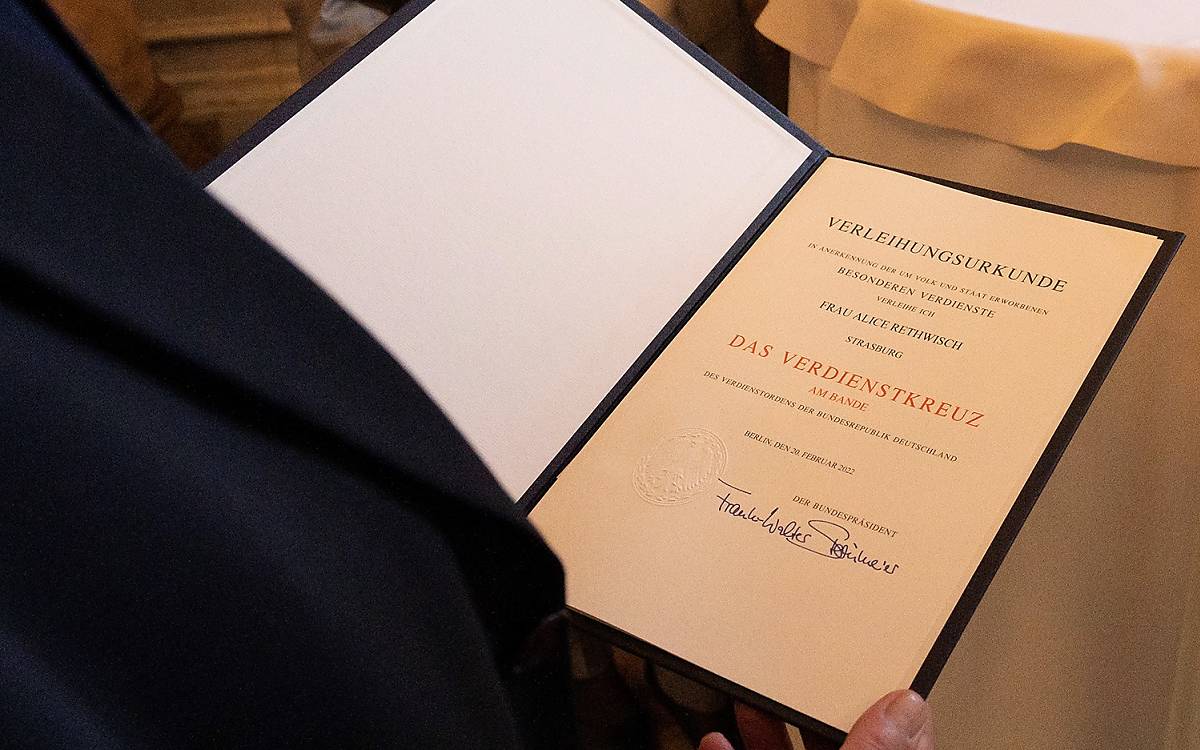 VERLEIHUNGSURKUNDE
IN ANERKENNUNG DER UM VOLK UND STAAT ERWORBENEN
BESONDEREN VERDIENSTE
VERLEIHE ICH
FRAU ALICE RETHWISCH
STRASBURG
DAS VERDIENSTKREUZ
AM BANDE
DES VERDIENSTORDENS DER BUNDESREPUBLIK DEUTSCHLAND
BERLIN, DEN 20. FEBRUAR 2022
DER BUNDESPRÄSIDENT
Frank-Walter Steinmeier